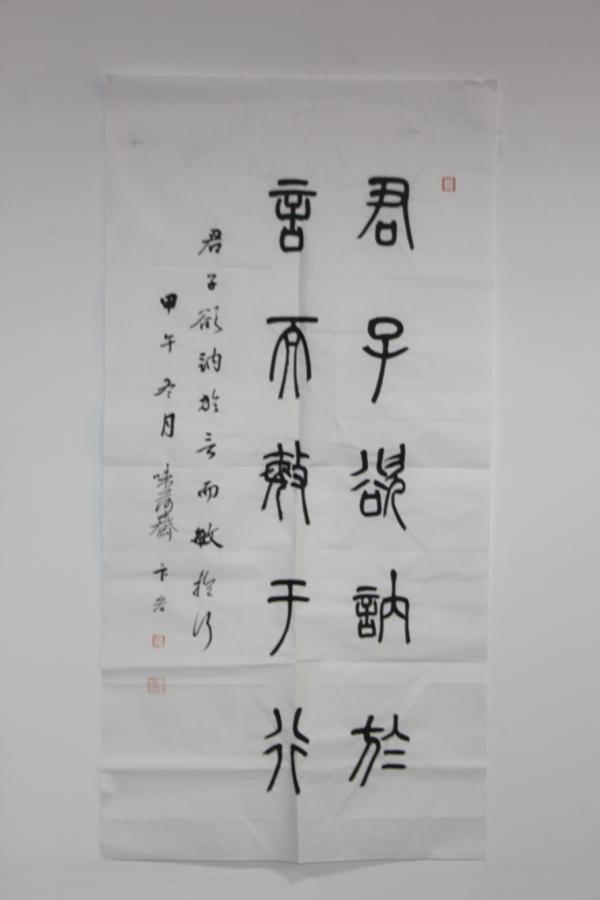 君子欲訥於
言而敏于行
君子欲訥於言而敏於行
甲午冬月